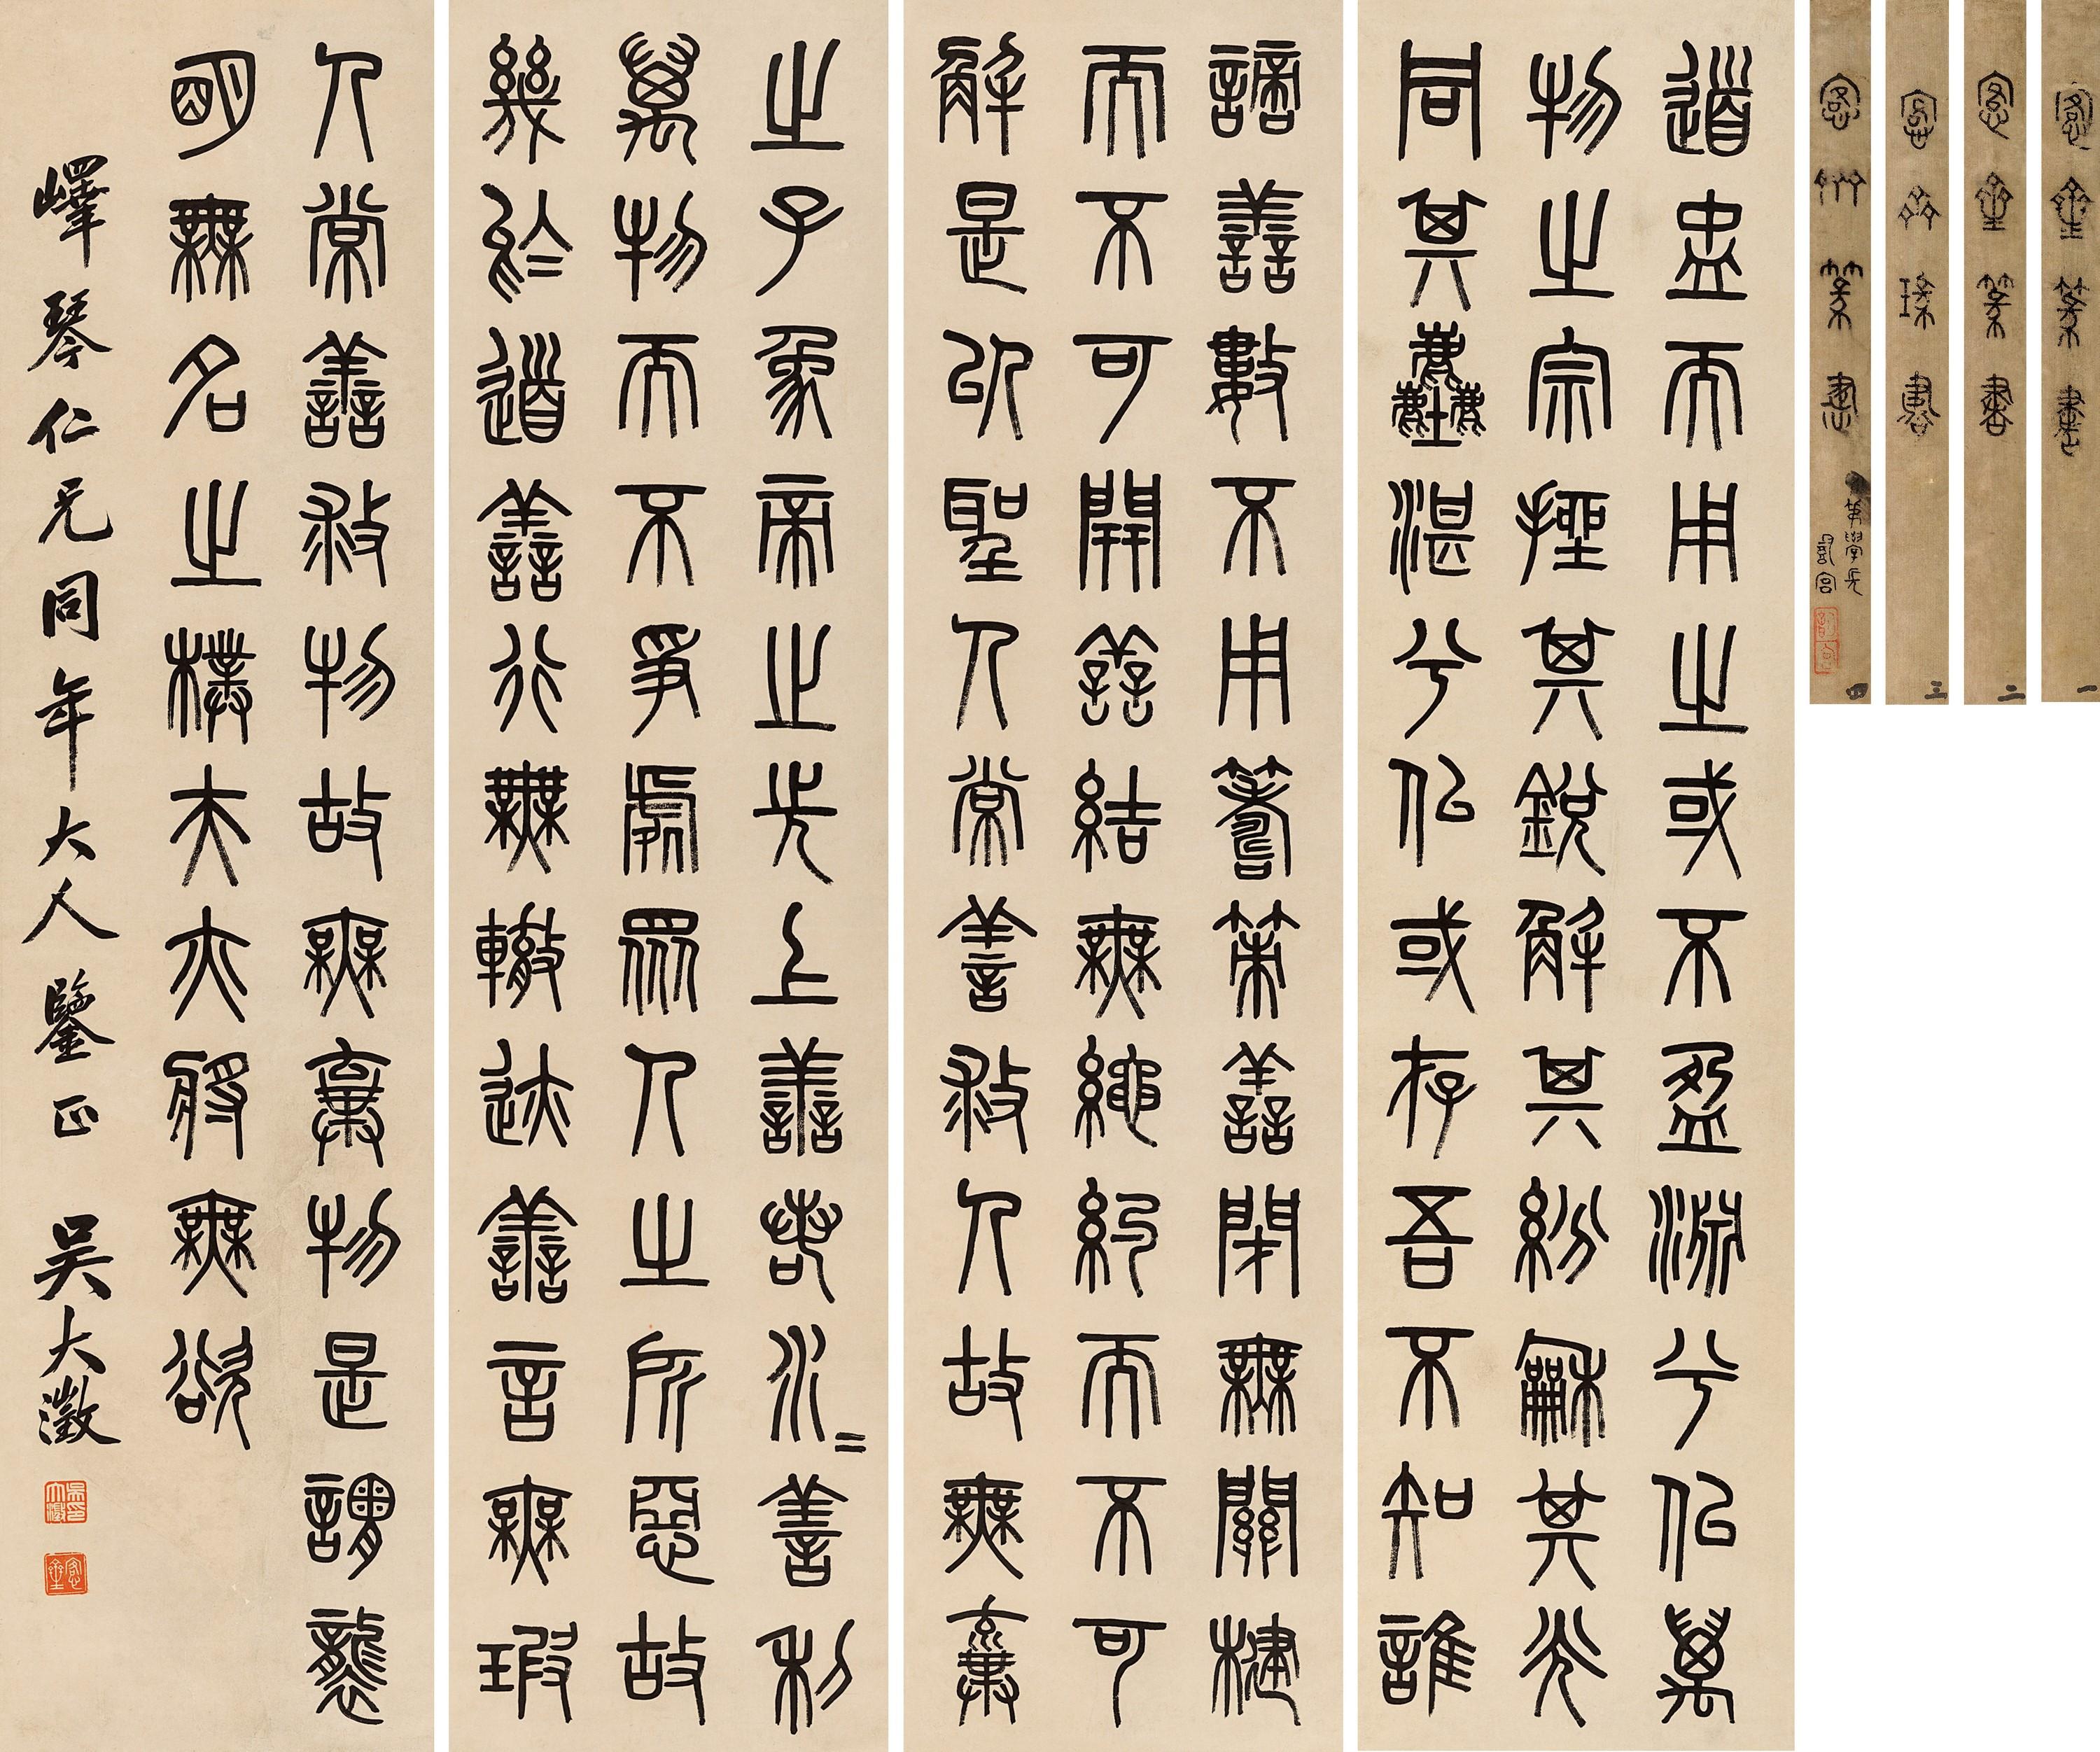 愙齋篆書 一
愙齋篆書 二
愙齋瑑書 三
愙齋篆書 四
道盅而用之或不盈淵兮似萬
物之宗挫其銳解其紛龢其光
同其塵湛兮似或存吾不知誰
謫善數不用籌策善閉無關楗
而不可開善結無繩約而不可
解是以聖人常善救人故無棄
之子象帝之先上善若水=善利
萬物而不爭處眾人之所惡故
幾於道善行無轍迹善言無瑕
人常善救物故無棄物是謂襲
明無名之樸夫亦將無欲
嶧琴仁兄同年大人鑒正 吳大澂
吳印大澂
愙齋